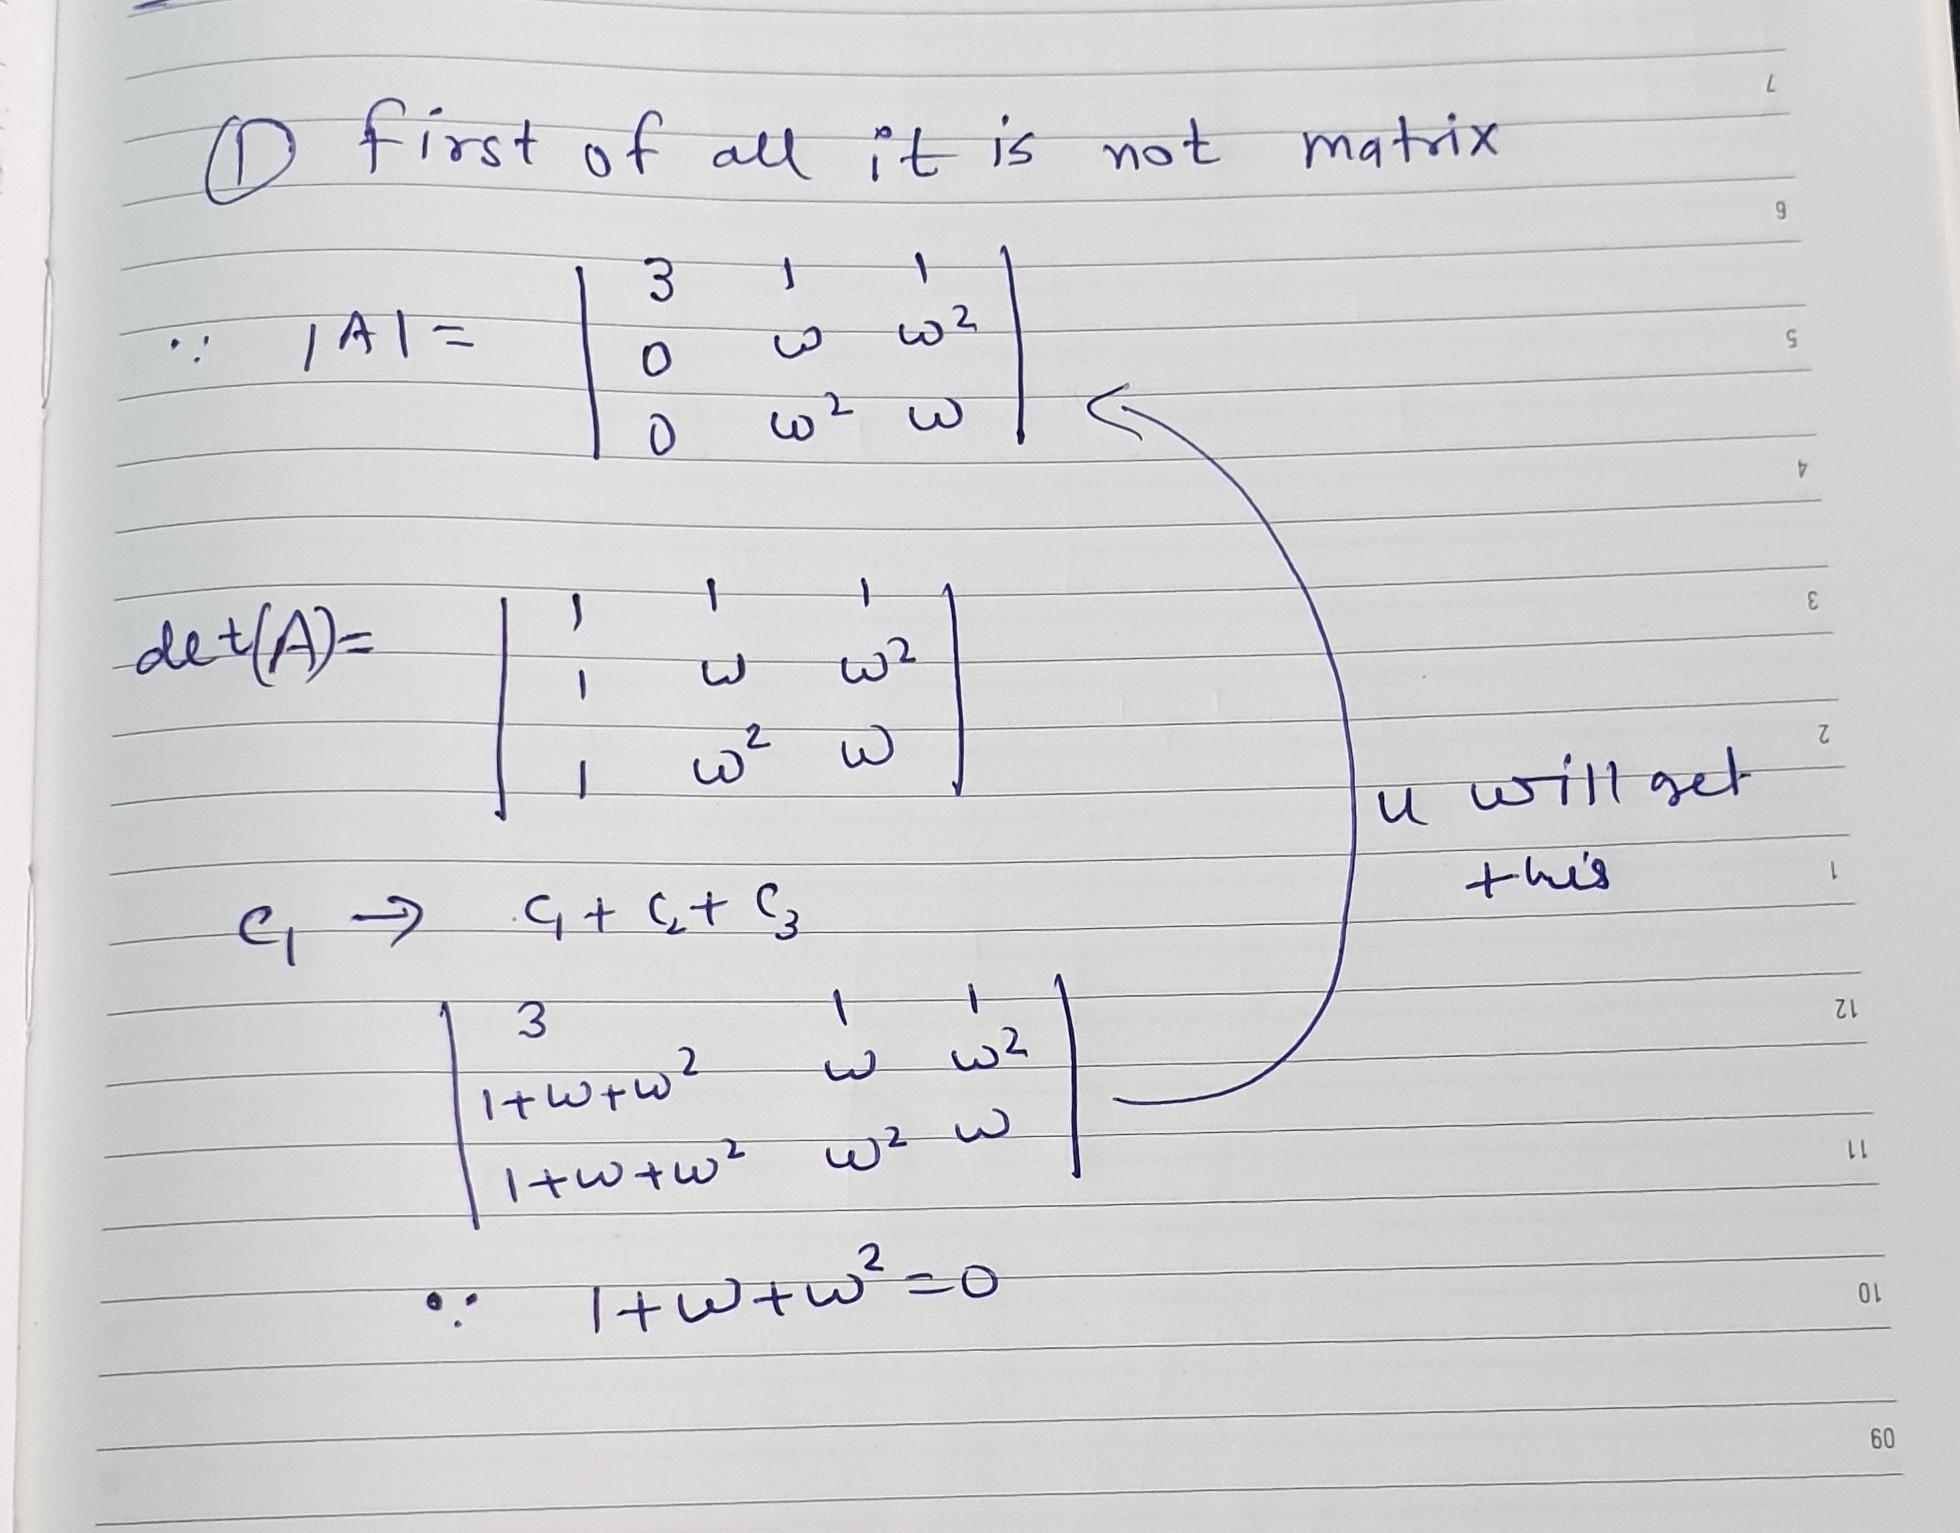 ① first of all it is not matrix
3 1 1
∵ |A| = 0 ω ω²
0 ω² ω
1 1 1
det(A)= 1 ω ω²
1 ω² ω
u will get
this
C₁ → C₁ + C₂ + C₃
3 1 1
1+ω+ω² ω ω²
1+ω+ω² ω² ω
∵ 1+ω+ω²=0
7
6
5
4
3
2
1
12
11
10
09